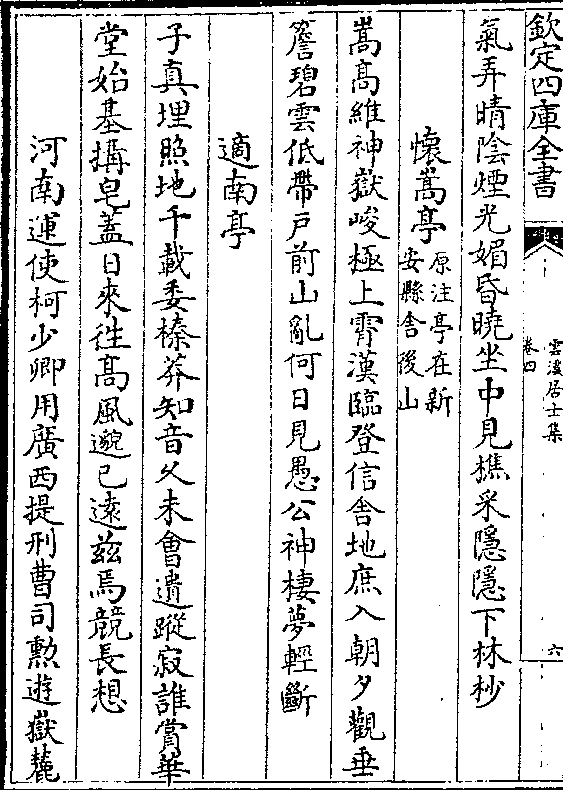 欽定四庫全書
雲溪居士集
卷四
六
氣弄晴陰煙光媚昏曉坐中見樵采隱隱下林杪
懷嵩亭
原注亭在新
安縣舍後山
嵩髙維神嶽峻極上霄漢臨登信舍地庶入朝夕觀垂
簷碧雲低帶戶前山亂何日見愚公神棲夢輕斷
適南亭
子真埋照地千載委榛莽知音乆未會遺蹤寂誰賞華
堂始基搆皂蓋日來徃髙風邈已遠兹焉競長想
河南運使柯少卿用廣西提刑曹司勲遊嶽麓